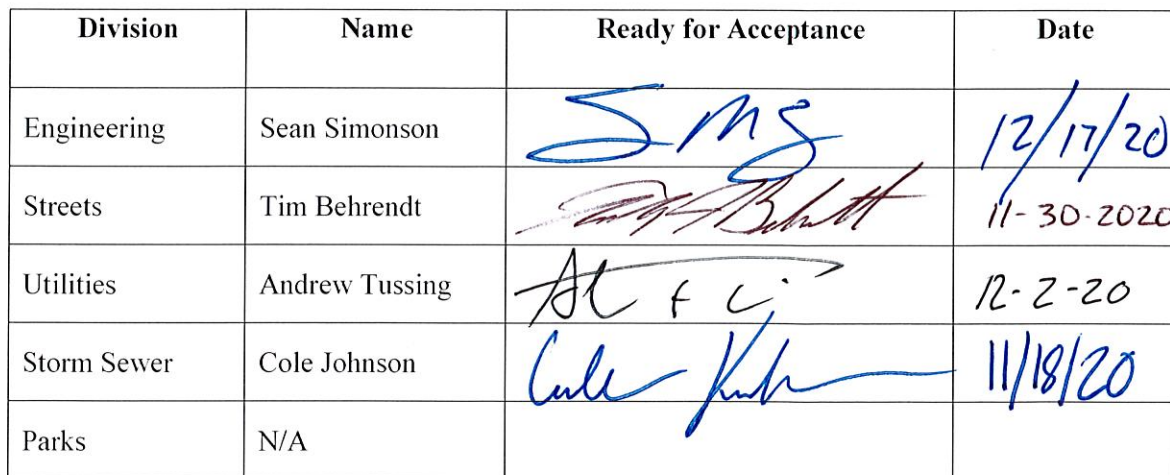 Division Name Ready for Acceptance Date
Engineering Sean Simonson 12/17/20
Streets Tim Behrendt 11-30-2020
Utilities Andrew Tussing 12-2-20
Storm Sewer Cole Johnson 11/18/20
Parks N/A